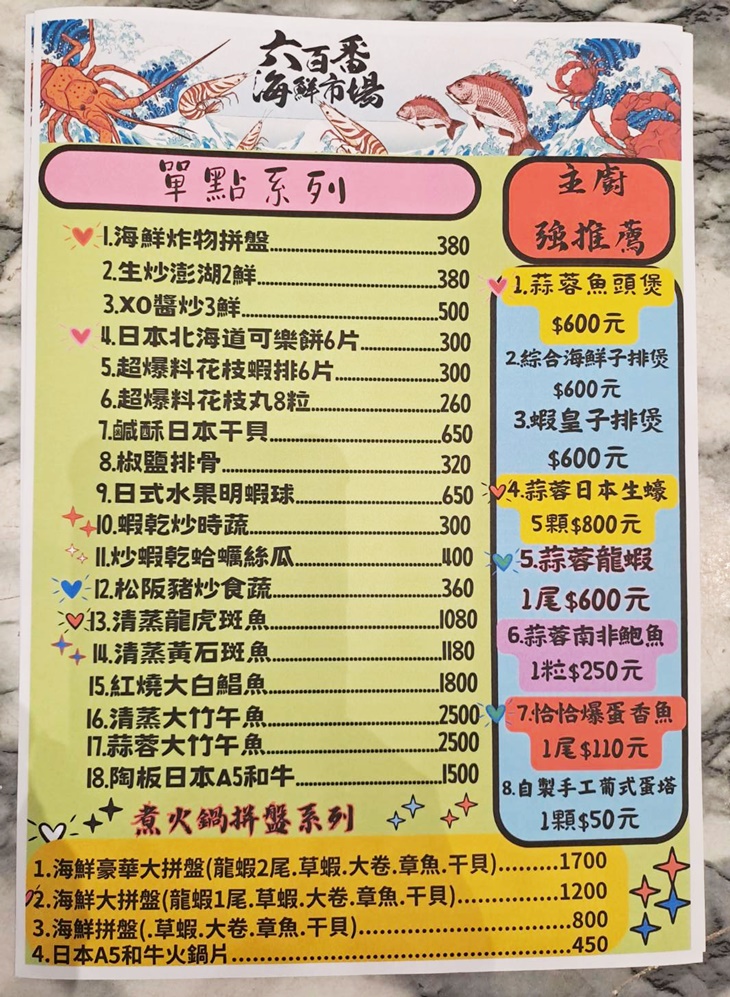 六百番
海鮮市場
單點系列
1.海鮮炸物拼盤 380
2.生炒澎湖2鮮 380
3.XO醬炒3鮮 500
4.日本北海道可樂餅6片 300
5.超爆料花枝蝦排6片 300
6.超爆料花枝丸8粒 260
7.鹹酥日本干貝 650
8.椒鹽排骨 320
9.日式水果明蝦球 650
10.蝦乾炒時蔬 300
11.炒蝦乾蛤蠣絲瓜 400
12.松阪豬炒食蔬 360
13.清蒸龍虎斑魚 1080
14.清蒸黃石斑魚 1180
15.紅燒大白鯧魚 1800
16.清蒸大竹午魚 2500
17.蒜蓉大竹午魚 2500
18.陶板日本A5和牛 1500
主廚
強推薦
1.蒜蓉魚頭煲
$600元
2.綜合海鮮子排煲
$600元
3.蝦皇子排煲
$600元
4.蒜蓉日本生蠔
5顆$800元
5.蒜蓉龍蝦
1尾$600元
6.蒜蓉南非鮑魚
1粒$250元
7.恰恰爆蛋香魚
1尾$110元
8.自製手工葡式蛋塔
1顆$50元
煮火鍋拼盤系列
1.海鮮豪華大拼盤(龍蝦2尾.草蝦.大卷.章魚.干貝)………1700
2.海鮮大拼盤(龍蝦1尾.草蝦.大卷.章魚.干貝)………1200
3.海鮮拼盤(.草蝦.大卷.章魚.干貝)………800
4.日本A5和牛火鍋片………450